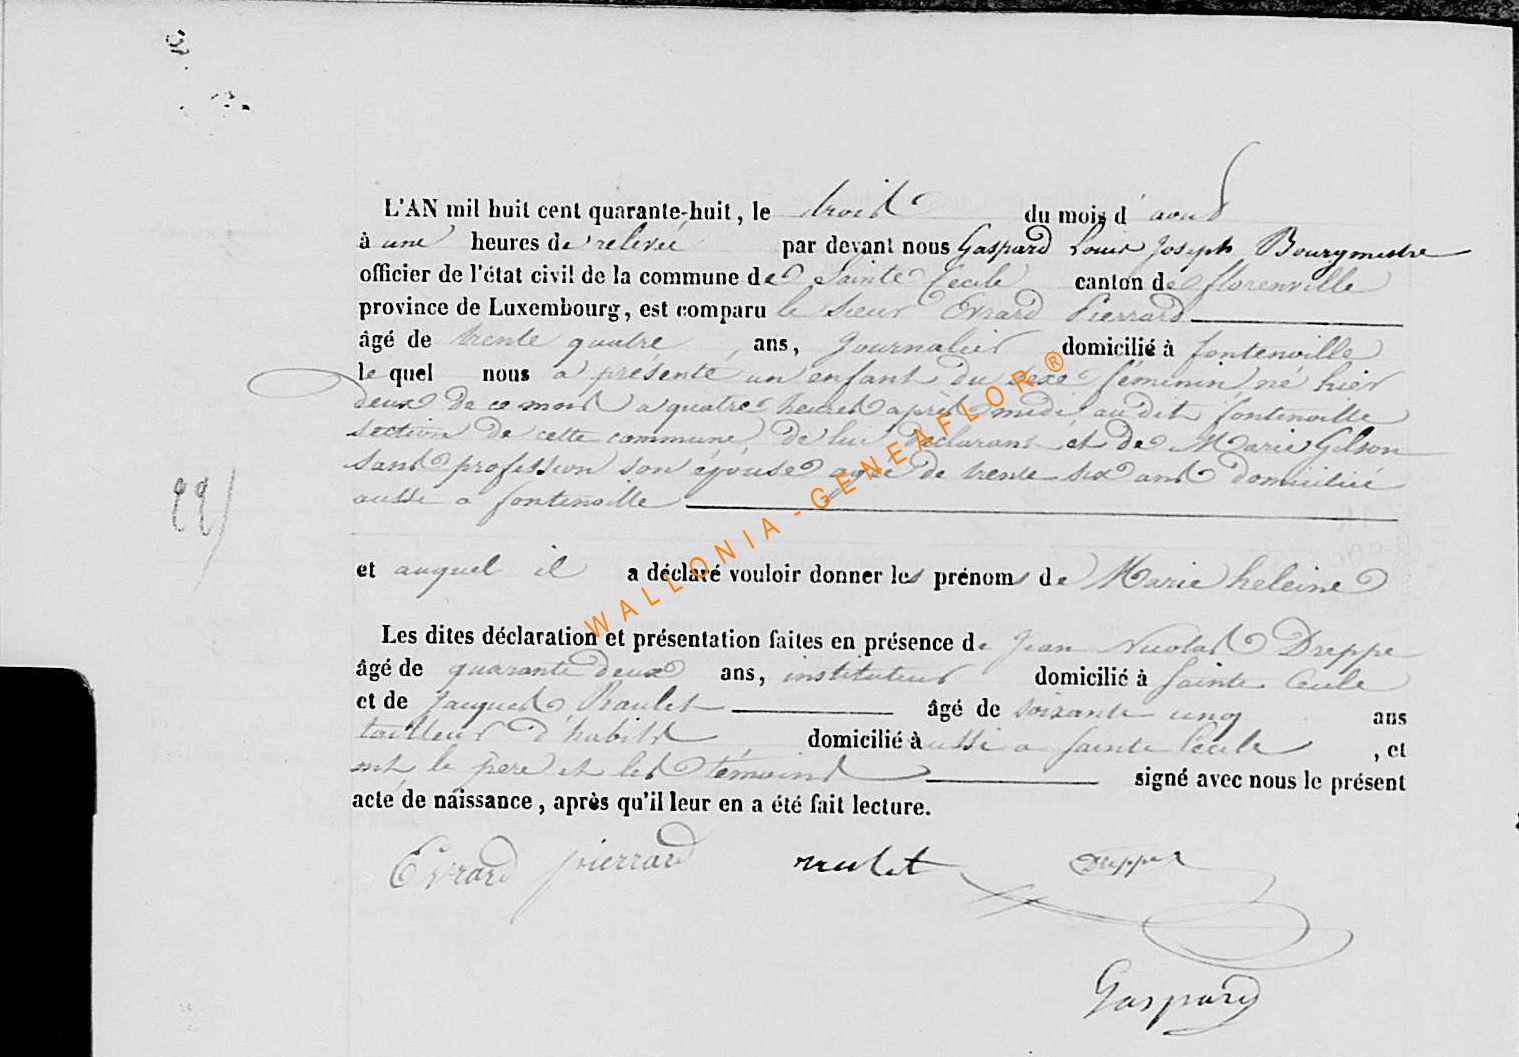 L'AN mil huit cent quarante-huit, le trois du mois d'aout
à une heures de relevée par devant nous Gaspard Louis Joseph Bourgmestre
officier de l'état civil de la commune de Sainte Cecile canton de florenville
province de Luxembourg, est comparu le Sieur Evrard Pierrard
âgé de trente quatre ans, Journalier domicilié à fontenoille
le quel nous a présenté un enfant du sexe féminin, né hier
deux de ce mois a quatre heures après midi, au dit fontenoille
section de cette commune, de lui declarant et de Marie Gilson
sans profession son épouse agée de trente six ans domiciliée
aussi a fontenoille
99
et auquel il a déclaré vouloir donner les prénoms de Marie heleine
Les dites déclaration et présentation faites en présence de Jean Nicolas Dreppe
âgé de quarante deux ans, instituteur domicilié à Sainte Cecile
et de Jacques Raulet âgé de soixante cinq ans
tailleur d'habits domicilié aussi a Sainte Cécile, et
ont le père et les témoins signé avec nous le présent
acte de naissance, après qu'il leur en a été fait lecture.
Evrard pierrard raulet Dreppe
Gaspard
WALLONIA - GENEAFLOR ®